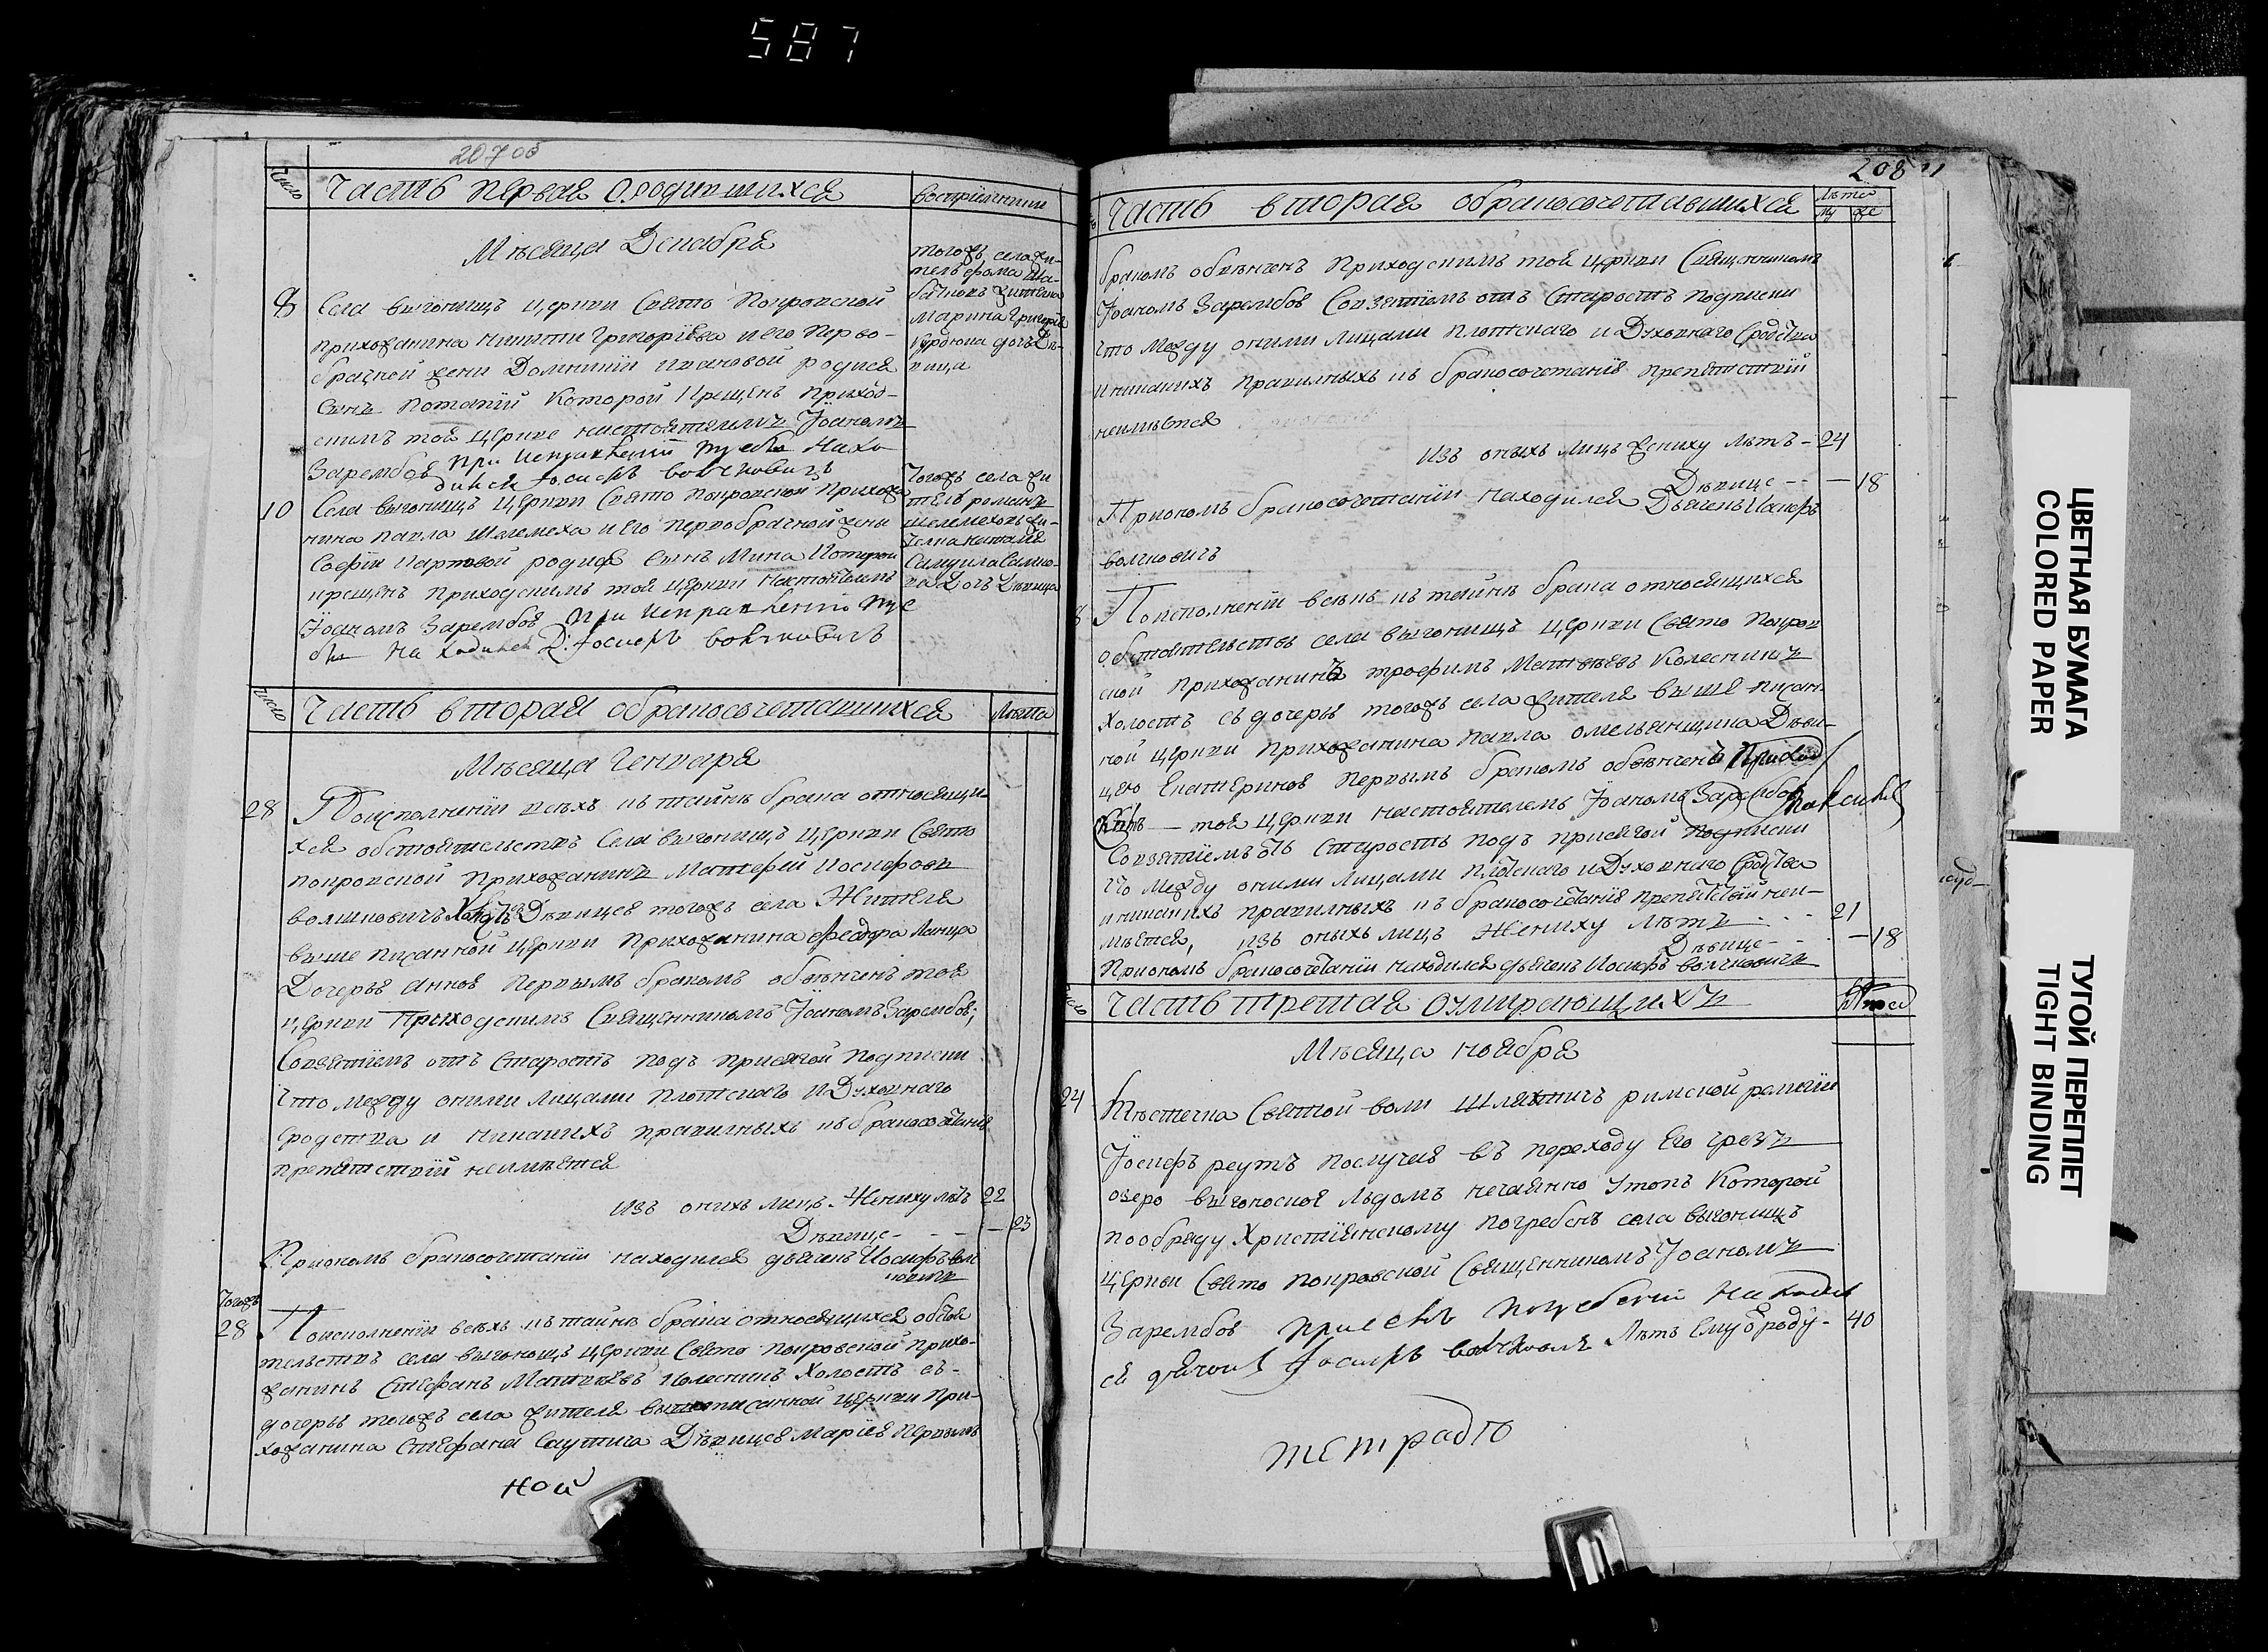 587
207 об
Число
Часть первая о родившихся
восприемники
Мѣсяца Декабря
8
Села выгонищъ церкви Свято Покровской
прихожанина Никити Григоріева и его перво-
брачной жени Домникіи Ивановой родися
Сынъ Потапій Которой Крещенъ приход-
скимъ тоя церкве настоятелемъ Іоаномъ
Зарембоя при исправленіи требы нахо
дился Іосифъ волчковичъ
тогожъ села жи-
тель фома
жителка
Марина Григорія
дочъ дѣ-
вица
10
Села выгонищъ церкви Свято Покровской прихожа
нина павла Шелемеха и его первобрачной жены
Софіи Карповой родися Сынъ Мина Которой
крещенъ приходскимъ тоя церкви настоятелемъ
Іоаномъ Зарембоя при исправленіи тре
бы находился Д: Іосифъ волчковичъ
Тогожъ села жи
тель романъ
шелемехъ жи-
телка наталія
Самуила
дочъ Дѣвица
Число
Часть вторая о бракосочетавшихся
Лѣта
Мѣсяца Генваря
28
По исполненіи всѣхъ къ тайнѣ брака относящи-
хся обстоятельствъ Села выгонищъ церкви Свято
покровской прихожанинъ Матфей Иосифовъ
волчковичъ Холостъ з Дѣвицея тогожъ села Жителя
выше писанной церкви прихожанина феодора
Дочерью Анноя первымъ бракомъ обвѣнчанъ тоя
церкви Приходскимъ Священникомъ Іоаномъ Зарембоя;
Совзятіемъ отъ Старостъ подъ присягой подписки
Что между оними Лицами плотскаго и Духовнаго
Сродства и никакихъ правилныхъ къ бракосочетанію
препятствій неимѣется
изъ онихъ лицъ Жениху лѣтъ 22
Дѣвице - - - 23
При ономъ бракосочетаніи находился дьячекъ Иосифъ вол
ковичъ
Тогожъ
28
По исполненіи всѣхъ къ тайнѣ брака относящихся обстоя
тельствъ села выгонищъ церкви Свято покровской прихо-
жанинъ Стефанъ Матвѣевъ Колесникъ Холостъ съ
дочерью тогожъ села жителя вышеписанной церкви при-
хожанина Стефана Саутича Дѣвицея Маріея первымъ
ной
208
Часть вторая о бракосочетавшихся
Лѣта
Му
же
бракомъ обвѣнчанъ Приходскимъ тоя церкви Священникомъ
Іоаномъ Зарембоя Совзятіемъ отъ Старостъ подписки
что Между оними Лицами плотскаго и Духовнаго Сродства
и никакихъ правилныхъ къ бракосочетанію препятствій
неимѣется
изъ оныхъ лицъ жениху лѣтъ - 24
Дѣвице - - - 18
При ономъ бракосочетаніи находился Дьячекъ Иосифъ
волчковичъ
8
По исполненіи всѣхъ къ тайнѣ брака относящихся
обстоятельствъ села выгонищъ церкви Свято Покров
ской прихожанинъ трофимъ Матвѣевъ Колесникъ
Холостъ съ дочерью тогожъ села жителя выше писан
ной церкви прихожанина павла омельянщика Дѣви-
цею Екатериноя первымъ браком обвѣнчанъ Приход
скимъ тоя церкви настоятелемъ Іоаномъ Зарембоя
Совзятіемъ отъ Старостъ подъ присягой подписки
что между оними лицами плотскаго и Духовнаго Сродства
и никакихъ правилныхъ къ бракосочетанію препятствій неи-
мѣется, изъ оныхъ лицъ Жениху лѣтъ - - - 21
Дѣвице - - - 18
При ономъ бракосочетаніи находился дьячекъ Иосифъ волчковичъ
Число
Часть третая о умирающихъ
Лѣта
Мѣсяца ноября
24
Мѣстечка Святой воли шляхтичъ римской релегіи
Іосифъ реутъ послучая въ переходу Его чрезъ
озеро выгоноское льдомъ нечаянно утопъ Которой
по обряду Христіянскому погребенъ села выгонищъ
церкви Свято покровской Священникомъ Іоаномъ
Зарембоя при семъ погребеніи находил
ся дячокъ Іосифъ волчкови Лѣтъ Ему - 40
тетрадю
ЦВЕТНАЯ БУМАГА
COLORED PAPER
ТУГОЙ ПЕРЕПЛЕТ
TIGHT BINDING